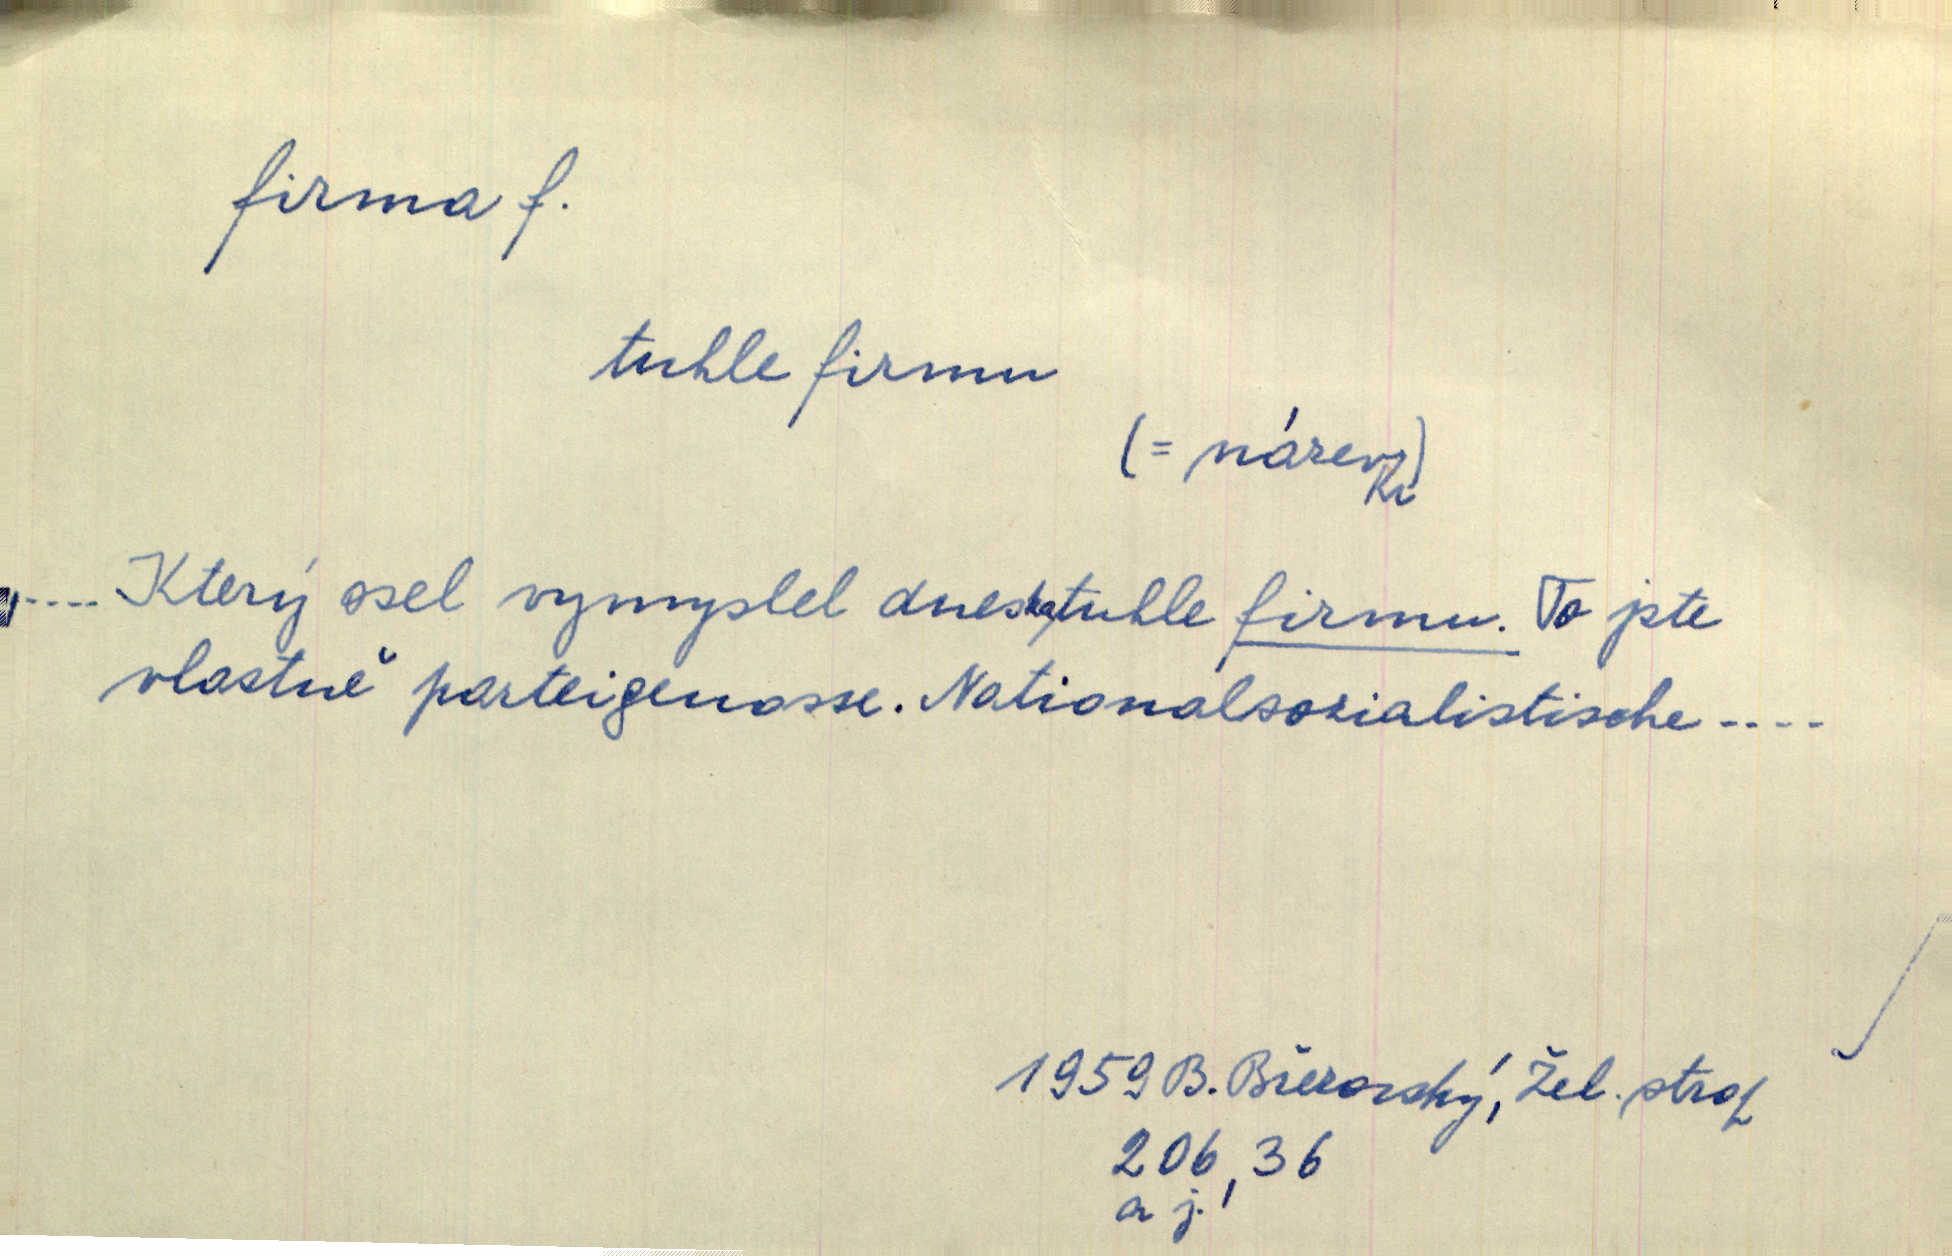 firma f.
tuhle firmu
(= název)
.... Který osel vymyslel dneska tuhle firmu. To jste
vlastně parteigenosse. Nationalsozialistische ....
1959 B. Březovský, Žel. strop
206, 36
a j.!